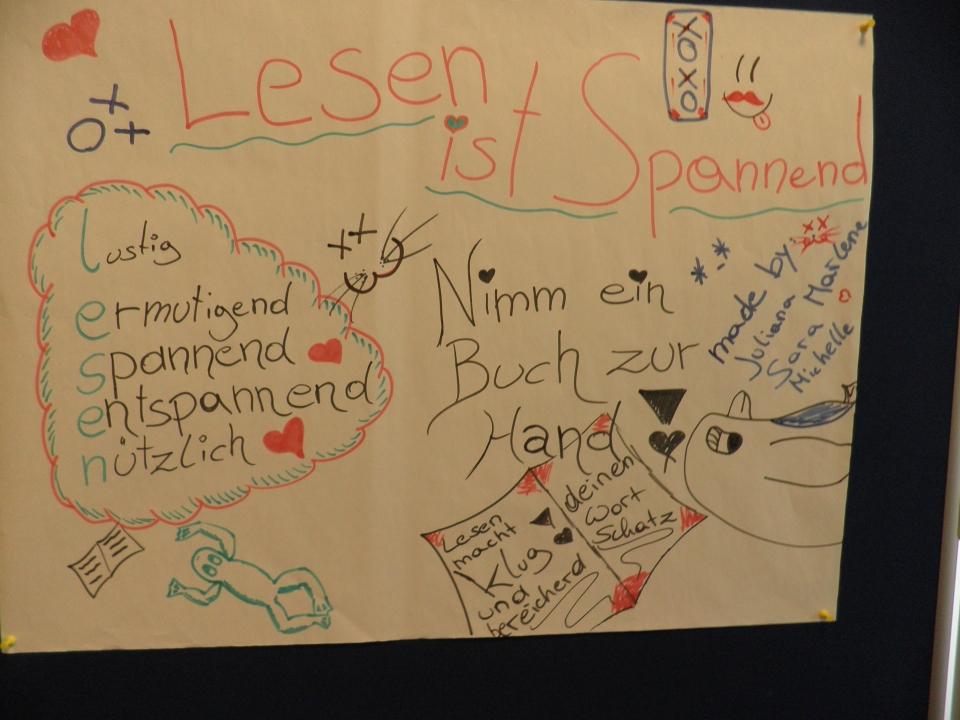 Lesen
ist Spannend
XOXO
lustig
ermutigend
spannend
entspannend
nützlich
Nimm ein
Buch zur
Hand
made by
Juliana
Sara Marlene
Michelle
Lesen
macht
Klug
und
bereicherd
deinen
Wort
Schatz